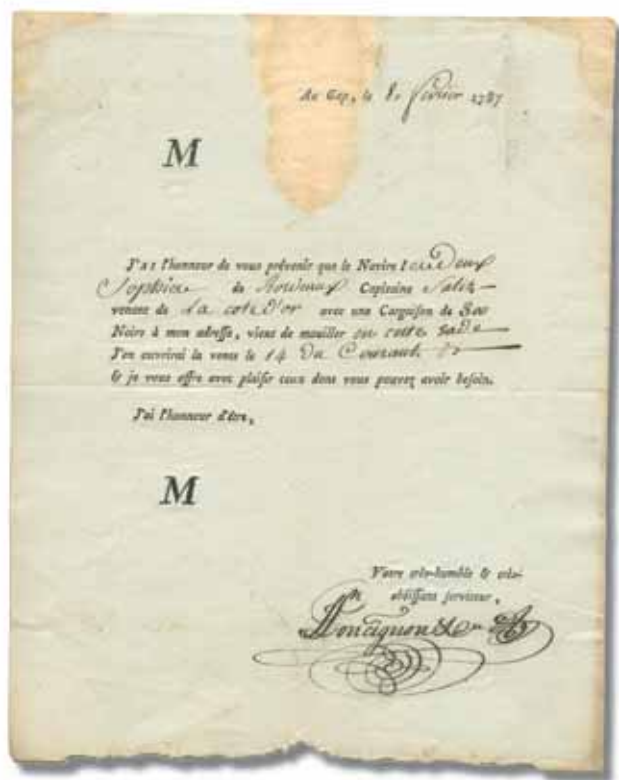 Au Cap, le 8. février 1787
M
J'ai l'honneur de vous prévenir que le Navire les Deux
Sophies de Bordeaux Capitaine
venant de La cote D'or avec une Cargaison de 300
Noirs à mon adresse, vient de mouiller en cette rade
J'en ouvrirai la vente le 14 Du Courant
& je vous offre avec plaisir ceux dont vous pouvez avoir besoin.
J'ai l'honneur d'être,
M
Votre très-humble & très-
obéissant serviteur,